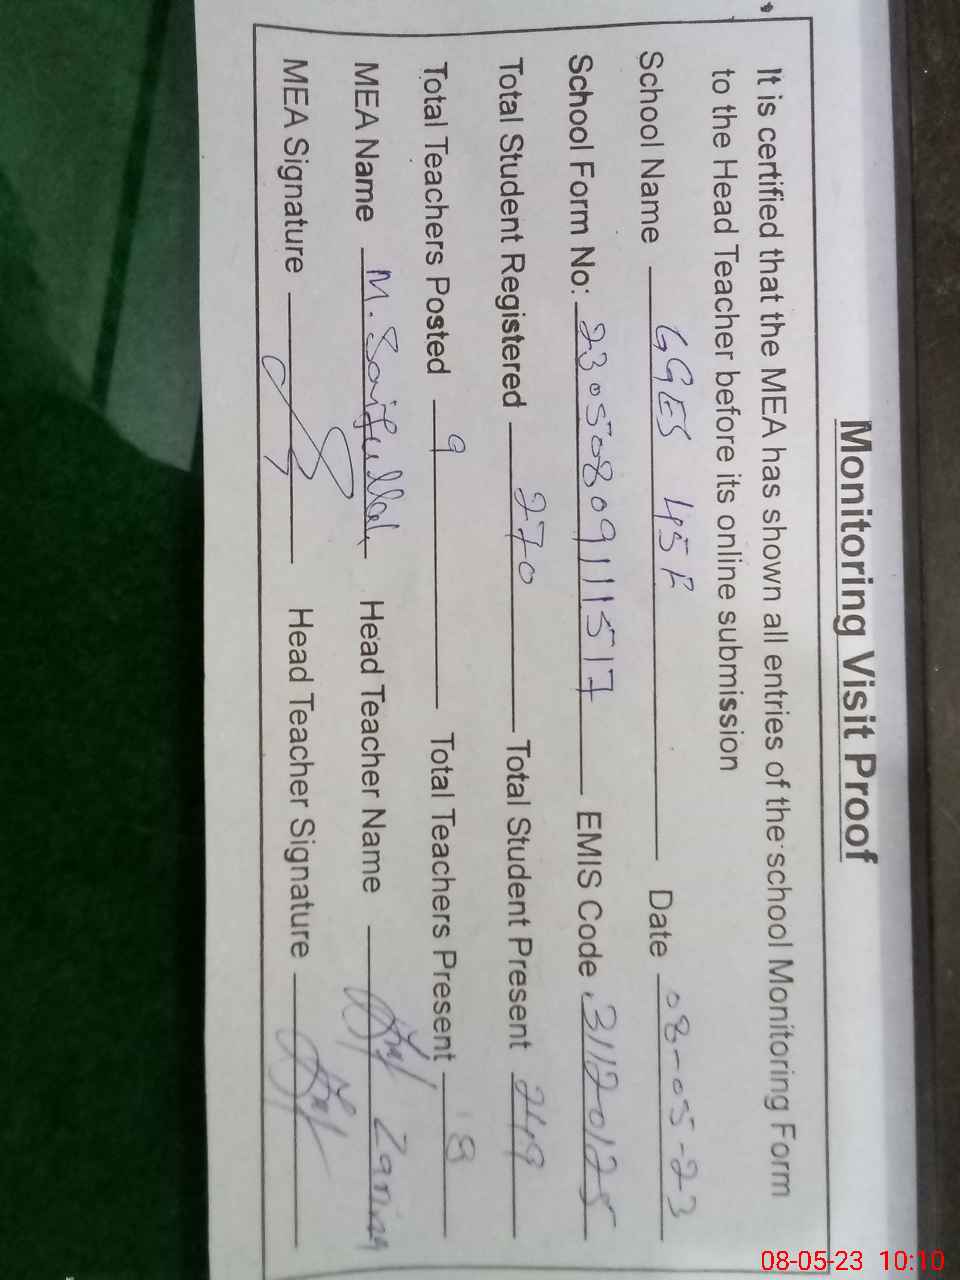 Monitoring Visit Proof
It is certified that the MEA has shown all entries of the school Monitoring Form
to the Head Teacher before its online submission
School Name GGES 45F Date 08-05-23
School Form No: 23050809111517 EMIS Code 31120125
Total Student Registered 270 Total Student Present 249
Total Teachers Posted 9 Total Teachers Present 8
MEA Name M. Saifullah Head Teacher Name Zarina
MEA Signature Head Teacher Signature
08-05-23 10:10